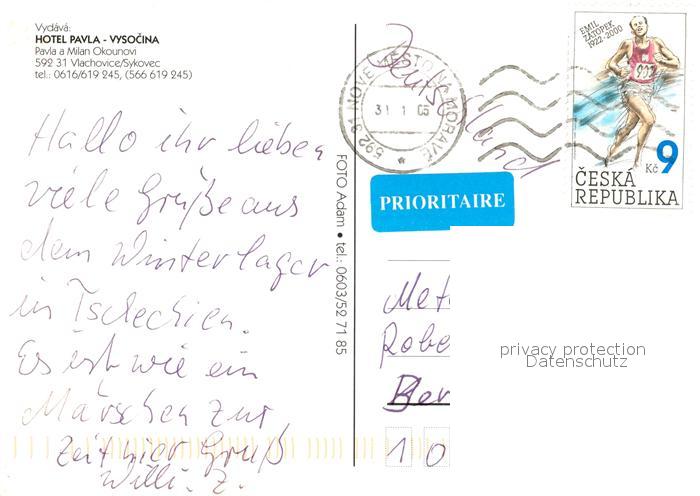 Vydává:
HOTEL PAVLA - VYSOČINA
Pavla a Milan Okounovi
592 31 Vlachovice/Sykovec
tel.: 0616/619 245, (566 619 245)
Hallo ihr lieben
viele Grüße aus
dem Winterlager
in Tschechien.
Es ist wie ein
Märschen zur
Zeit hier Gruß
Willi. Z.
FOTO Adam • tel.: 0603/52 71 85
592 31 NOVÉ MĚSTO NA MORAVĚ
31 1 05
Deutschland
EMIL
ZÁTOPEK
1922-2000
Kč 9
ČESKÁ
REPUBLIKA
PRIORITAIRE
Met
Robe
Ber
10
privacy protection
Datenschutz